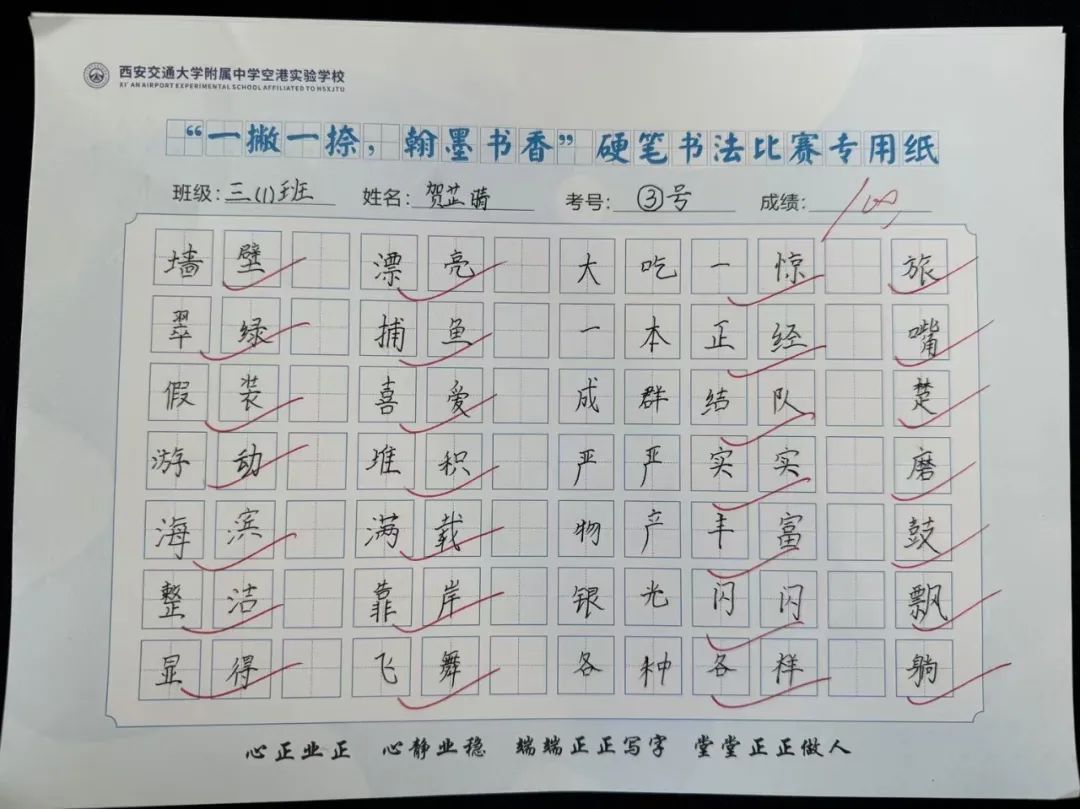 西安交通大学附属中学空港实验学校
XI'AN AIRPORT EXPERIMENTAL SCHOOL AFFILIATED TO HSXJTU
“一撇一捺，翰墨书香”硬笔书法比赛专用纸
班级：三(1)班 姓名：贺芷晴 考号：③号 成绩：100
墙壁 漂亮 大吃一惊 旅
翠绿 捕鱼 一本正经 嘴
假装 喜爱 成群结队 楚
游动 堆积 严严实实 磨
海滨 满载 物产丰富 鼓
整洁 靠岸 银光闪闪 飘
显得 飞舞 各种各样 躺
心正业正 心静业稳 端端正正写字 堂堂正正做人